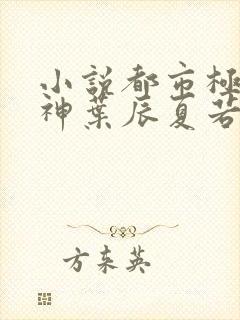 小説都市極
神葉辰夏若
方東英